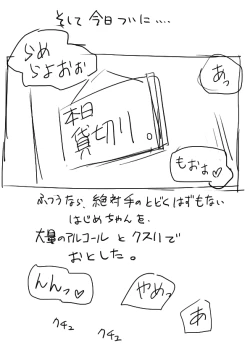 そして今日ついに....
らめ
らよおぉ
あっ
本日
貸切り。
もおぉ♡
ふつうなら、絶対手のとどくはずもない
はじめちゃんを、
大量のアルコールとクスリで
おとした。
んんっ♡
やめっ
あ
クチュ
クチュ